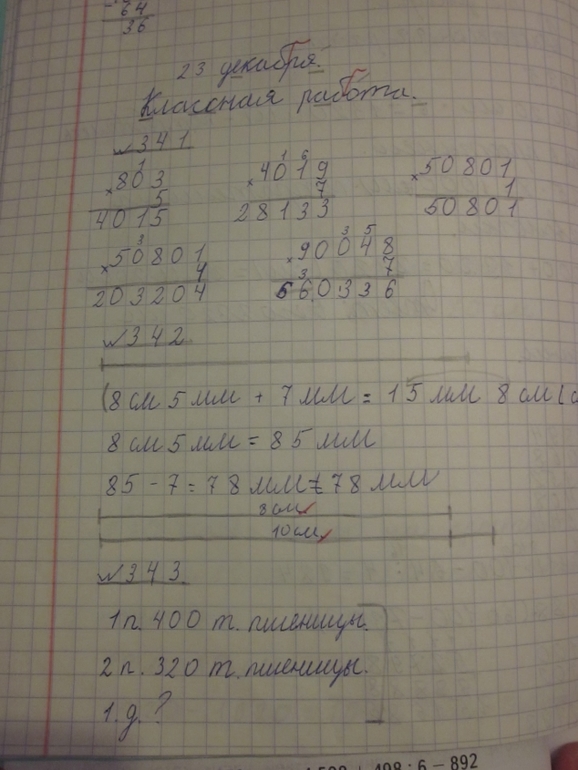 64
36
23 декабря.
Классная работа.
№341
1
× 803
5
4015
1 6
× 4019
7
28133
× 50801
1
50801
3
× 50801
4
203204
3 5
× 90048
7
3
660336
№342
(8 см 5 мм + 7 мм = 15 мм 8 см
8 см 5 мм = 85 мм
85 - 7 = 78 мм = 78 мм
8 см
10 см
№343
1 п. 400 т. пшеницы.
2 п. 320 т. пшеницы.
1. д. ?
+ 498 : 6 – 892